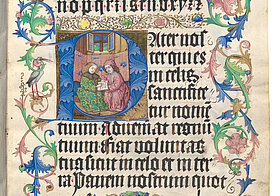 nopqrſstuvxyz
Pater nos
ter qui es
in celis
sanctifice
tur nomē
tuum adueniat regnū
tuum fiat voluntas
tua sicut in celo et in te
rra Panem nostrum quot